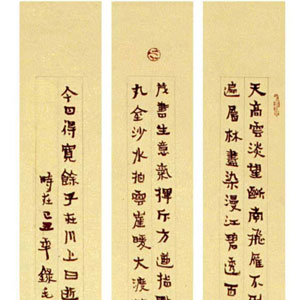 天高雲淡望斷南飛雁不
遍層林盡染漫江碧透百
茂書生意氣揮斥方遒指
金沙水拍雲崖暖大渡
今日得寬餘子在川上曰逝
時在己丑年錄毛